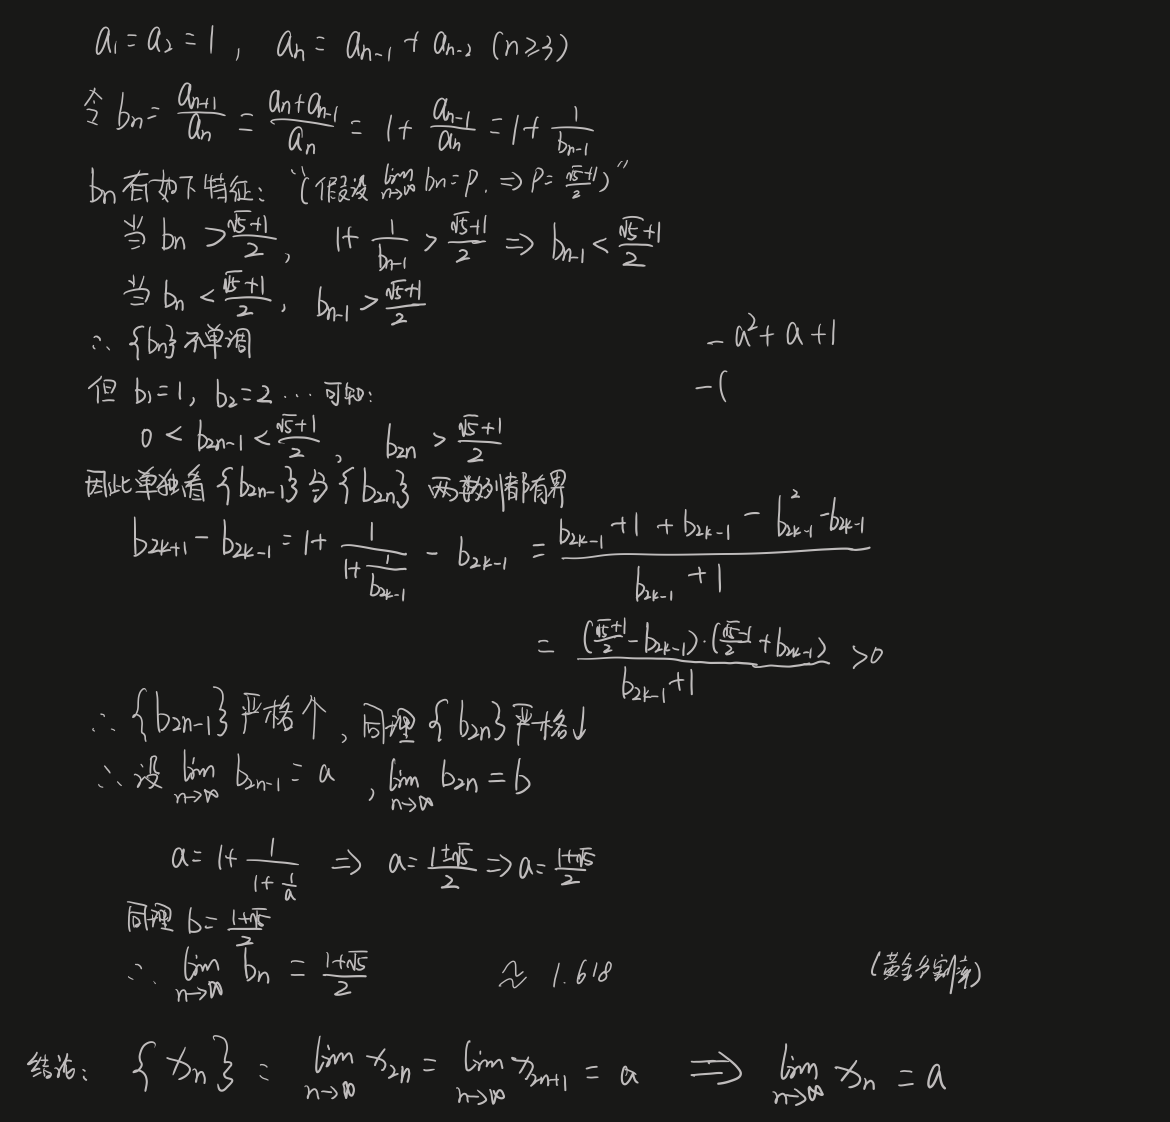 a₁ = a₂ = 1 , aₙ = aₙ₋₁ + aₙ₋₂ (n≥3)
令 bₙ = aₙ₊₁/aₙ = (aₙ+aₙ₋₁)/aₙ = 1 + aₙ₋₁/aₙ = 1 + 1/bₙ₋₁
bₙ有如下特征: “(假设 lim_{n→∞} bₙ = P. ⇒ P = (√5+1)/2)”
当 bₙ > (√5+1)/2 , 1 + 1/bₙ₋₁ > (√5+1)/2 ⇒ bₙ₋₁ < (√5+1)/2
当 bₙ < (√5+1)/2 , bₙ₋₁ > (√5+1)/2
∴ {bₙ}不单调
- a² + a + 1
- (
但 b₁=1, b₂=2 … 可知:
0 < b₂ₙ₋₁ < (√5+1)/2 , b₂ₙ > (√5+1)/2
因此单独看 {b₂ₙ₋₁} 与 {b₂ₙ} 两数列都有界
b₂ₖ₊₁ - b₂ₖ₋₁ = 1 + 1/(1+1/b₂ₖ₋₁) - b₂ₖ₋₁ = (b₂ₖ₋₁ + 1 + b₂ₖ₋₁ - b₂ₖ₋₁² - b₂ₖ₋₁)/(b₂ₖ₋₁ + 1)
= ((√5+1)/2 - b₂ₖ₋₁)·((√5-1)/2 + b₂ₖ₋₁)/(b₂ₖ₋₁+1) > 0
∴ {b₂ₙ₋₁} 严格↑ , 同理 {b₂ₙ} 严格↓
∴ 设 lim_{n→∞} b₂ₙ₋₁ = a , lim_{n→∞} b₂ₙ = b
a = 1 + 1/(1+1/a) ⇒ a = (1±√5)/2 ⇒ a = (1+√5)/2
同理 b = (1+√5)/2
∴ lim_{n→∞} bₙ = (1+√5)/2 ≈ 1.618 (黄金分割率)
结论: {xₙ} : lim_{n→∞} x₂ₙ = lim_{n→∞} x₂ₙ₊₁ = a ⇒ lim_{n→∞} xₙ = a